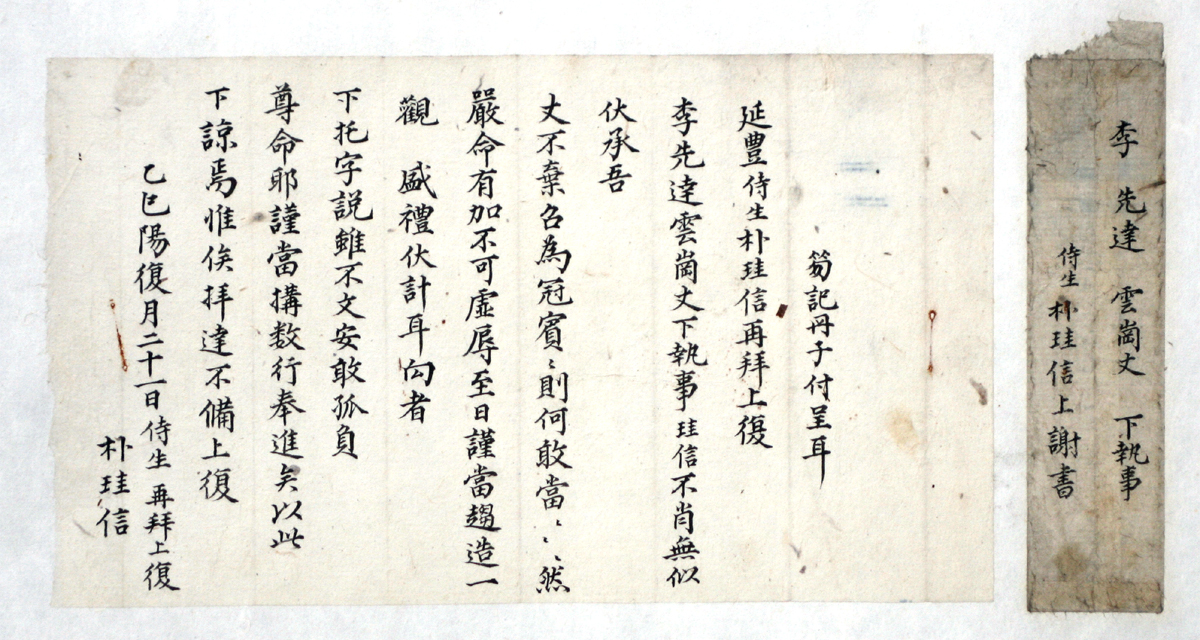 李 先達 雲崗丈 下執事
侍生朴珪信上謝書
笏記冊子付呈耳
延豊侍生朴珪信再拜上復
李先達雲崗丈下執事珪信不肖無似
伏承吾
丈不棄召為冠賓〻則何敢當〻〻〻然
嚴命有加不可虛辱至日謹當趨造一
觀 盛禮伏計耳向者
下托字說雖不文安敢孤負
尊命耶謹當搆数行奉進矣以此
下諒焉惟俟拜達不備上復
乙巳陽復月二十一日侍生 再拜上復
朴珪信